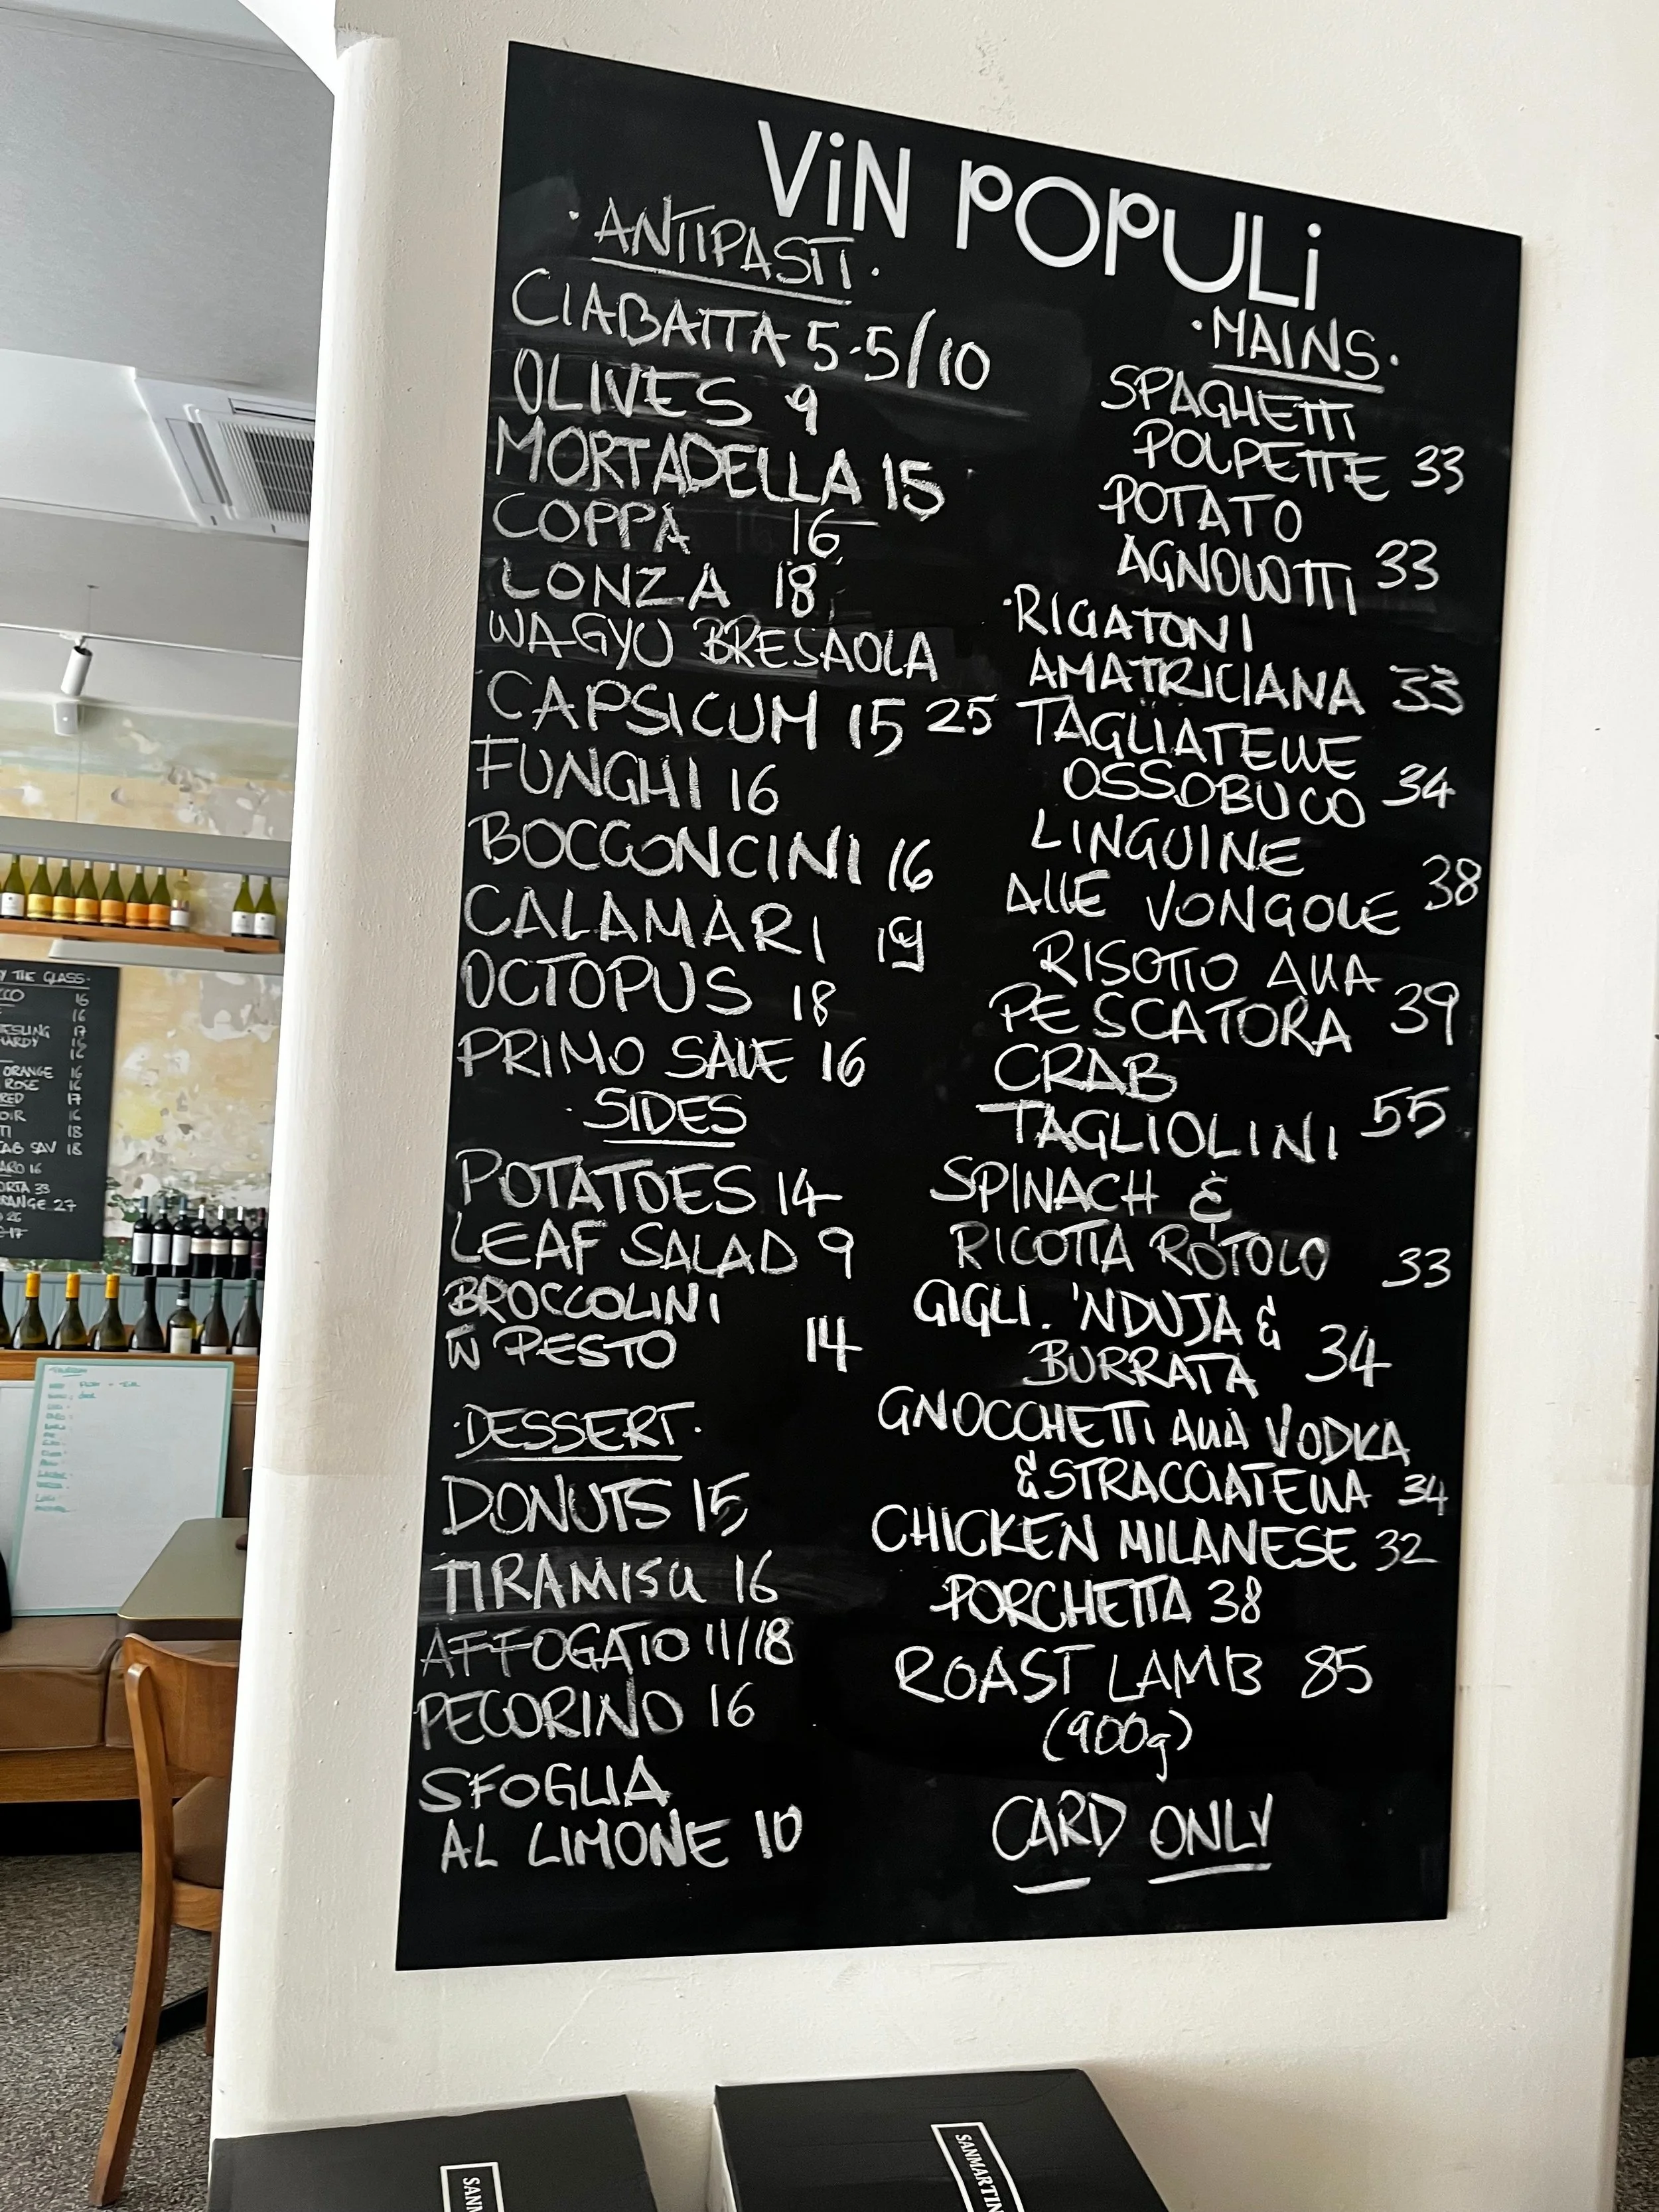 ViN POPULi
·ANTIPASTI·
CIABATTA 5.5/10
OLIVES 9
MORTADELLA 15
COPPA 16
LONZA 18
WAGYU BRESAOLA
25
CAPSICUM 15
FUNGHI 16
BOCCONCINI 16
CALAMARI 19
OCTOPUS 18
PRIMO SALE 16
·SIDES
POTATOES 14
LEAF SALAD 9
BROCCOLINI
W PESTO 14
·DESSERT·
DONUTS 15
TIRAMISU 16
AFFOGATO 11/18
PECORINO 16
SFOGLIA
AL LIMONE 10
·MAINS·
SPAGHETTI
POLPETTE 33
POTATO
AGNOLOTTI 33
·RIGATONI
AMATRICIANA 33
TAGLIATELLE
OSSOBUCO 34
LINGUINE
ALLE VONGOLE 38
RISOTTO ALLA
PESCATORA 39
CRAB
TAGLIOLINI 55
SPINACH &
RICOTTA ROTOLO 33
GIGLI. 'NDUJA &
BURRATA 34
GNOCCHETTI ALLA VODKA
& STRACCIATELLA 34
CHICKEN MILANESE 32
PORCHETTA 38
ROAST LAMB 85
(900g)
CARD ONLY
Y THE GLASS·
16
16
17
16
16
ORANGE 16
ROSE 16
RED 17
16
18
SAV 18
16
33
RANGE 27
26
17
SANM
SANMARTIN